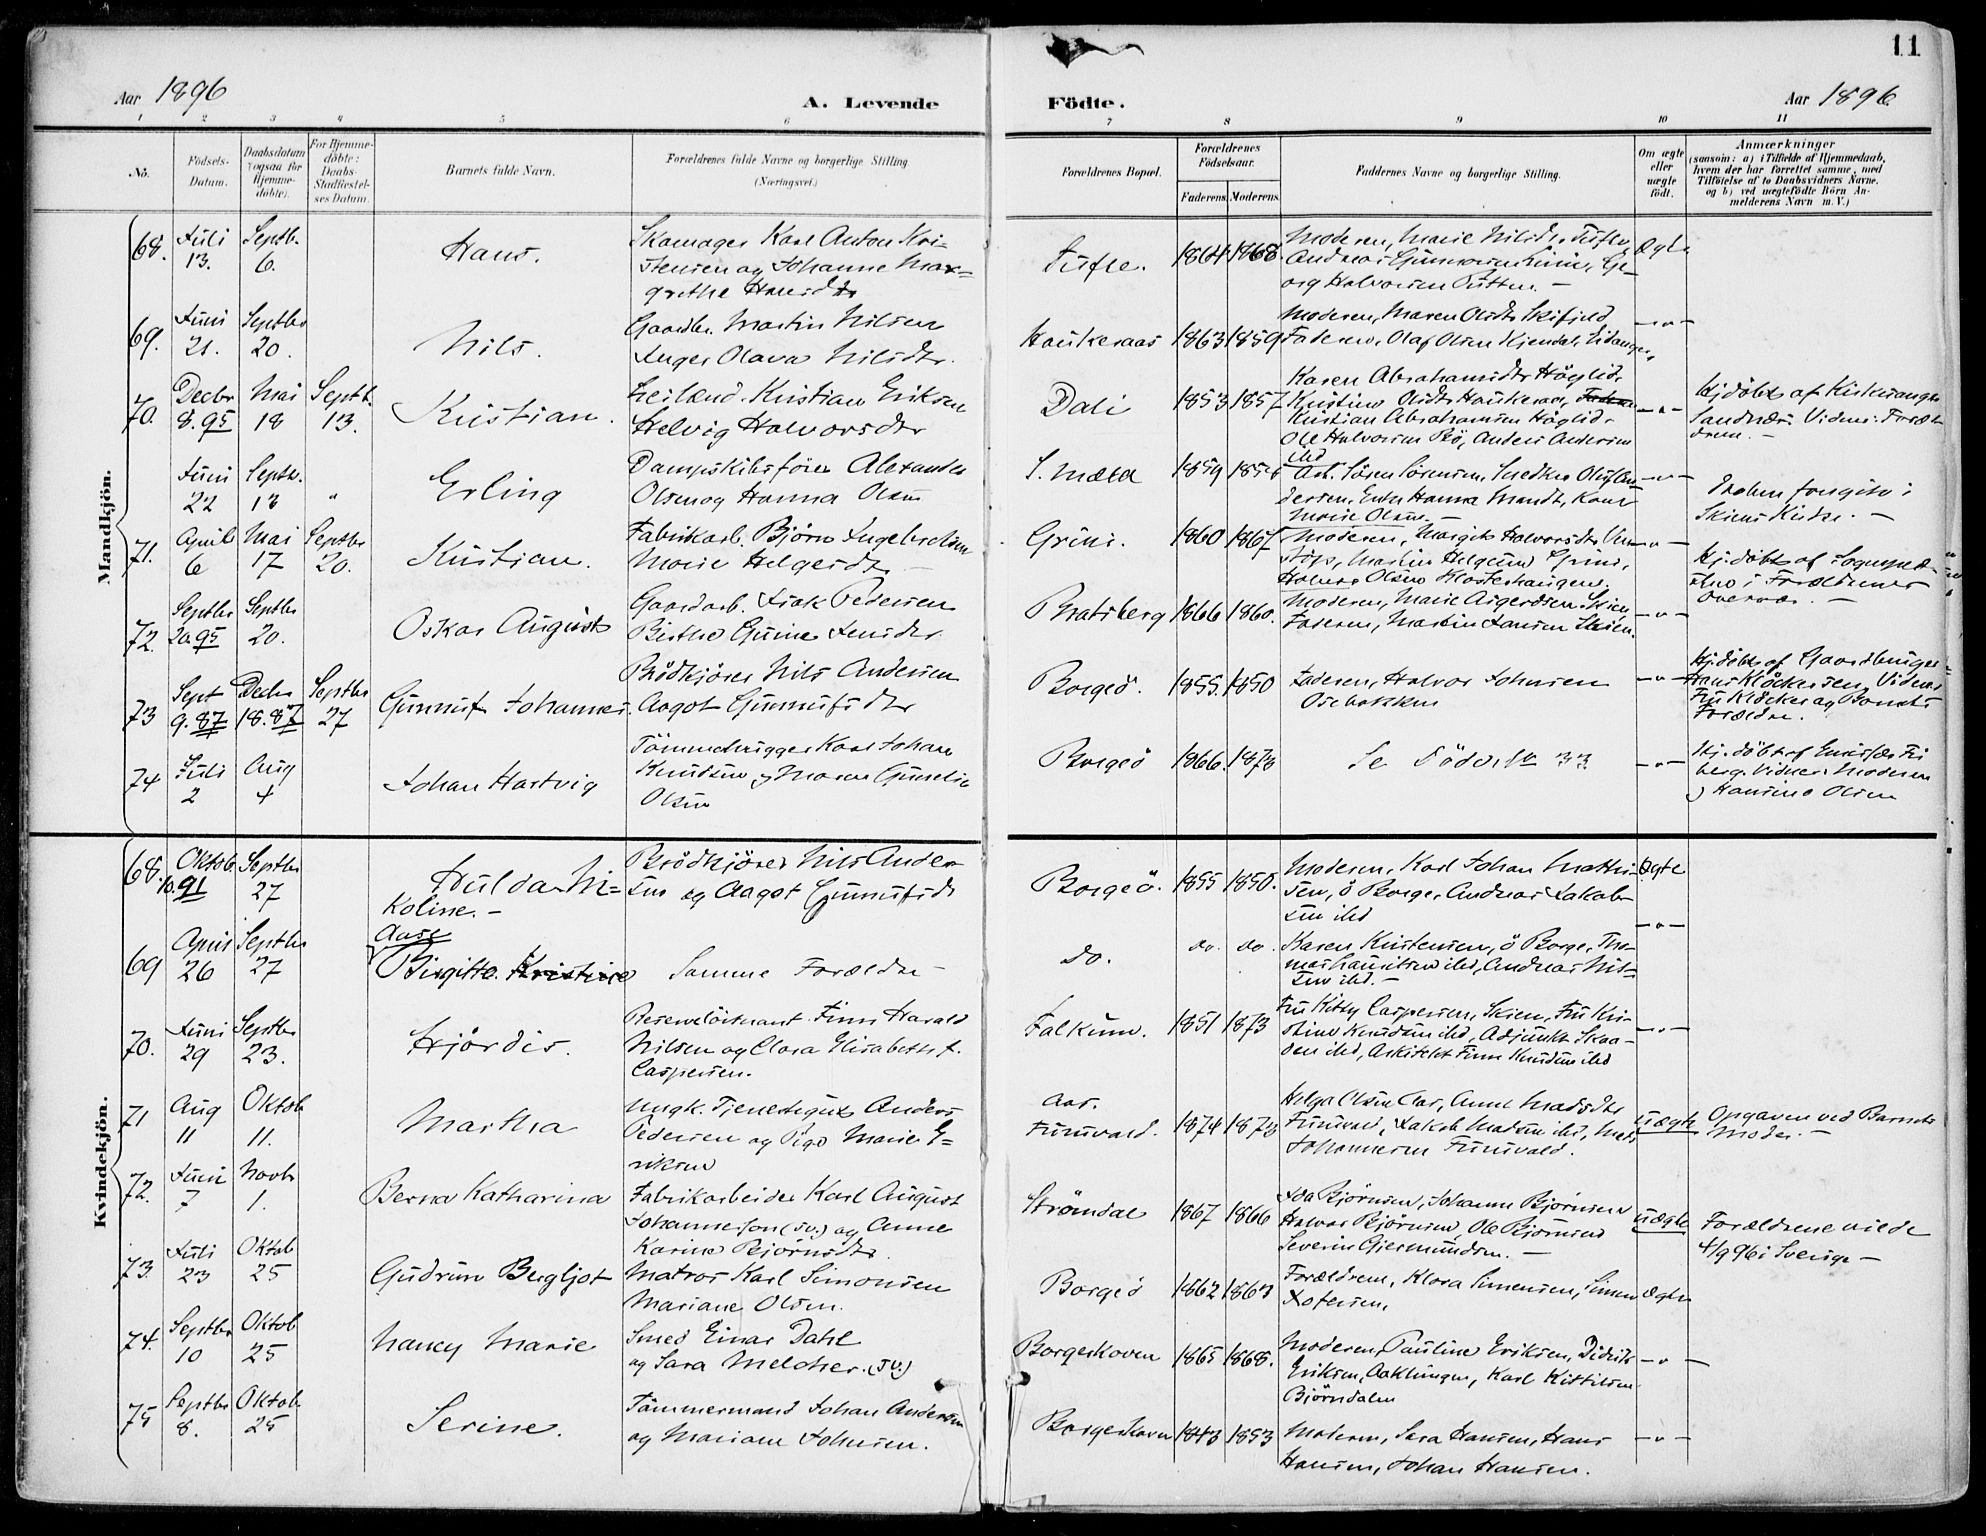 11
Aar 1896
A. Levende
Födte.
Aar 1896
1 2 3 4 5 6
7 8 9 10 11
No.
Födsels-
Datum.
Daabsdatum
(ogsaa for
Hjemme-
döbte).
For Hjemme-
döbte:
Daabs-
Stadfæstel-
ses Datum.
Barnets fulde Navn.
Forældrenes fulde Navne og borgerlige Stilling
(Næringsvei.)
Forældrenes Bopæl.
Forældrenes
Födselsaar.
Faderens Moderens
Faddernes Navne og borgerlige Stilling.
Om ægte
eller
uægte
födt.
Anmærkninger
(saasom: a) i Tilfælde af Hjemmedaab,
hvem der har forrettet samme, med
Tilföielse af to Daabsvidners Navne,
og b) ved uægtefödte Börn An-
melderens Navn m. V.)
Mandkjön.
68. Juli 13. Septb. 6.
Hans.
Skomager Karl Anton Kri-
stensen og Johanne Mar-
grethe Hansdtr
Tufte. 1864 1868
Moderen, Marie Nilsdtr Tufte,
Ægte
69. Juni 21. Septbr 20.
Nils.
Gaardbr. Martin Nilsen
Inger Olava Nilsdtr.
Haukeraas 1863 1859
Moderen, Maren Olsdtr Skifjeld
Faderen, Olaf Olsen Kjendal, Eidanger,
70. Decbr 8.95 Mai 18 Septb. 13.
Kristian.
Leilænd. Kristian Eriksen
Helvig Halvorsdtr
Dali 1853 1857
Karen Abrahamsdtr Höglid,
Kristine Olsdtr Haukeraas,
Kristian Abrahamsen Höglid,
Ole Halvorsen Bö, Anders Andersen
ibd
Hj.döbt af Kirkesanger
Sandnæs. Vidner: Foræl-
drene. —
Juni 22 Septbr. 13 "
Erling
Dampskibsförer Alexander
Olsen og Hanna Olsen
S. Mæla 1859 1856
Daaben foregik i
Skiens Kirke. —
71. April 6 Mai 17 Septbr 20.
Kristian.
Fabrikarb. Björn Ingebretsen
Marie Helgesdtr —
Grini. 1860 1867
Moderen, Margit Halvorsdtr
Halvor Olsen Klosterhaugen.
Hj.döbt af Sognepræ-
sten i Forældrenes
Overvær. —
72. Septbr 20.95 Septbr 20.
Oskar August
Gaardarb. Isak Pedersen
Berthe Gurine Jensdtr.
Bratsberg 1866 1860.
Moderen, Marie Asgerdsen Skien
Faderen, Martin Jansen Skien.
73 Sept 9.87 Decbr 18.87 Septbr 27
Gunnuf Johannes.
Brödkjörer Nils Andersen
Aagot Gunnufsdtr
Borgeö. 1855. 1850
Faderen, Halvor Johnsen
Osebakken
Hj.döbt af Gaardbruger
Hans Klöckersen, Vidner
Fru Klöcker og Barnets
Forældre.
74 Juli 2 Aug 4
Johan Hartvig
Tömmerhugger Karl Johan
Knudsen og Maren Gunelie
Olsen
Borgeö 1866. 1873
Se Döde No 33.
berg. Vidner: Moderen
og Hansine Olsen
Kvindekjön.
68. Oktob. 10.91 Septbr 27
Hulda Ni-
koline. —
Brödkjörer Nils Ander-
sen og Aagot Gunnufsdtr
Borgeö. 1855 1850.
Moderen, Karl Johan Mathi-
sen, ö Borge, Andreas Jakob-
sen ibd
Ægte
69 April 26 Septbr 27
Aase
Birgitte. Kristine
Samme Forældre —
do. do. do.
Karen Kristensen, ö Borge, Tho-
mas Lauritsen ibd, Andreas Nil-
sen ibd. —
70. Juni 29 Septbr 23.
Hjördis.
Reserveløitnant Finn Harald
Nilsen og Clara Elisabeth f.
Caspersen.
Falkum. 1851 1873
Fru Kitty Caspersen, Skien, Fru Kri-
stine Knudsen ibd, Adjunkt Skaa-
den ibd, Arkitekt Finn Knudsen ibd
71 Aug 11 Oktob 11.
Martha
Ungk. Tjenestegut Anders
Pedersen og Pige Marie E-
riksen
Aas.
Furuvald. 1874 1873
Helga Olsen Aas, Anne Madsdtr
Furuvald, Jakob Madsen ibd, Mats
Johannesen Furuvald.
uægte
Opgaven ved Barnets
Moder. —
72. Juni 7 Novbr 1.
Berna Katharina
Fabrikarbeider Karl August
Johannesson (sv.) og Anne
Karine Björnsdtr.
Strömdal 1867 1866
Ida Björnsen, Johanne Björnsen
Halvor Björnsen, Ole Björnsen
Severin Gjermundsen. —
uægte
Forældrene viede
4/9 96 i Sverige —
73. Juli 23 Oktob 25
Gudrun Bergljot
Matros Karl Simonsen
Mariane Olsen.
Borgeö 1862 1863
Forældrene, Klara Simensen, Simen
Ægte
74. Septbr 10 Oktob 25
Nancy Marie
Smed Einar Dahl
og Sara Melcher. (sv.)
Borgeskoven 1865 1868.
Moderen, Pauline Eriksen, Didrik
Eriksen, Aaklungen, Karl Kittilsen
Björndalen
75 Septbr 8. Oktob 25
Serine.
Tömmermand Johan Andersen
og Mariane Johnsen.
Borgeskoven 1843 1853
Moderen, Sara Hansen, Hans
Hansen, Johan Hansen.